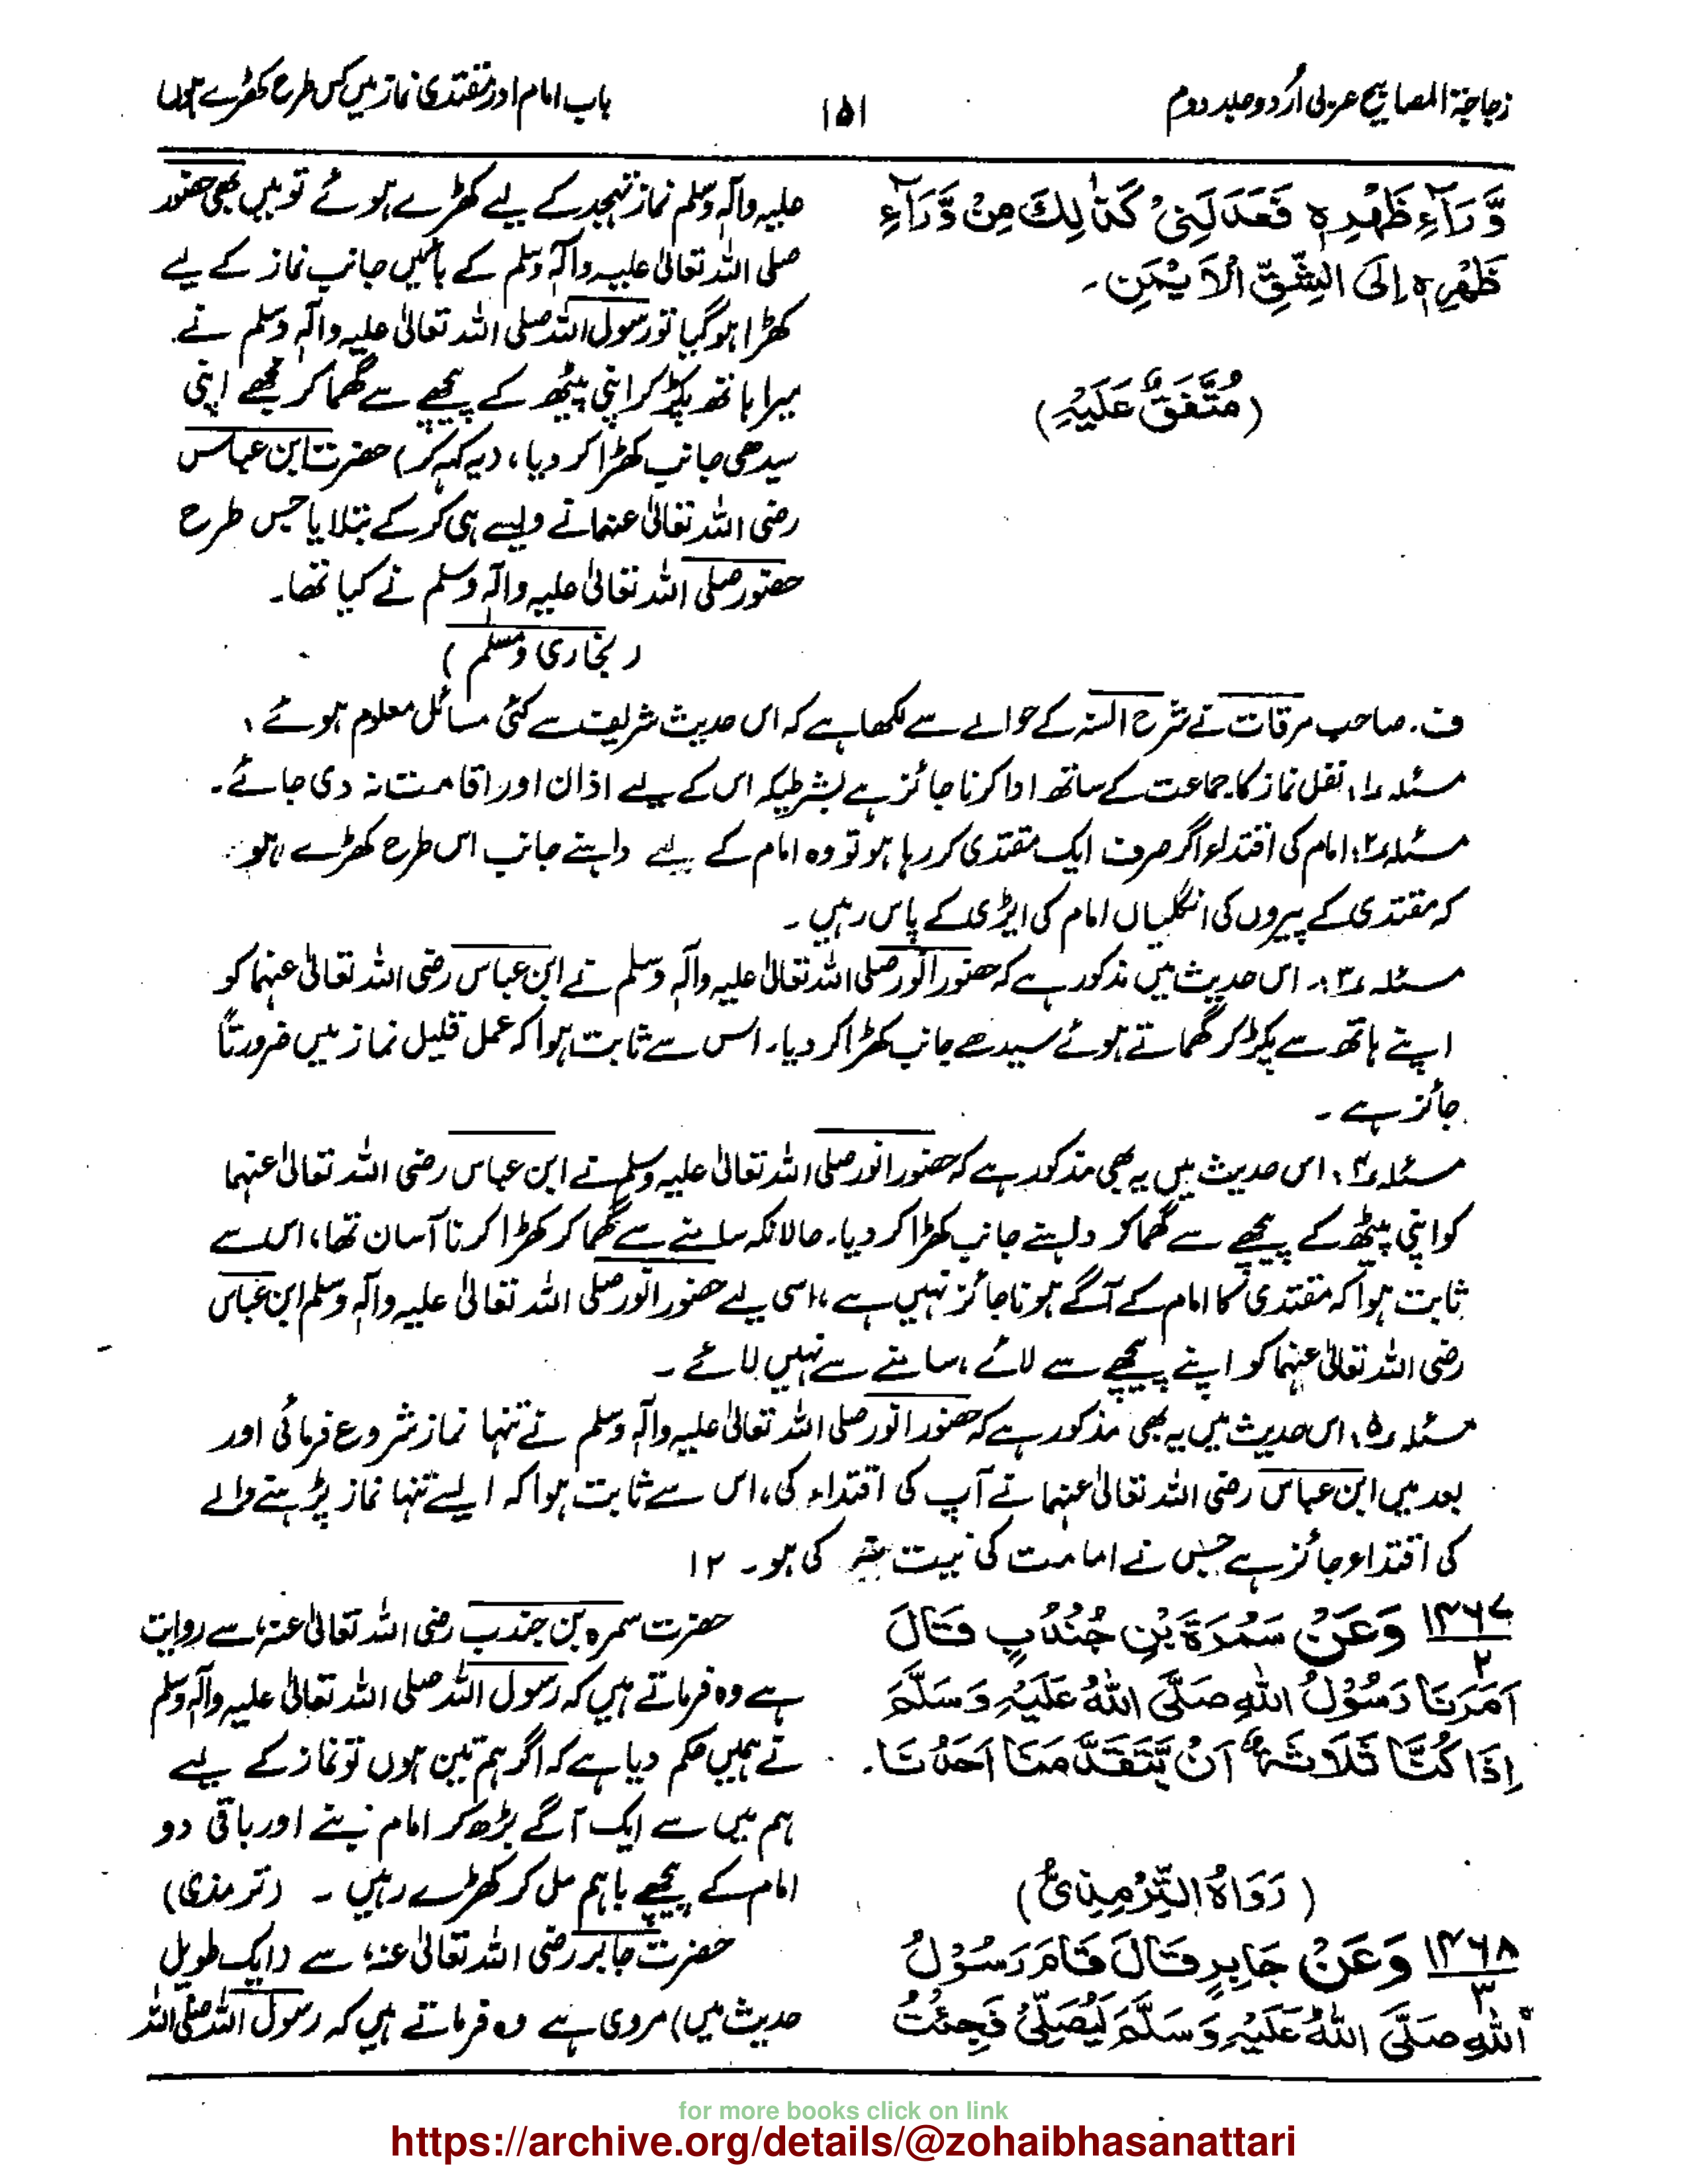 زجاجۃ المصابیح عربی اُردو جلد دوم
۱۵۱
باب امام اور مقتدی نماز میں کس طرح کھڑے ہوں
وَّرَآءِ ظَهْرِهٖ فَعَدَلَنِیْ كَذٰلِكَ مِنْ وَّرَآءِ
ظَهْرِهٖ اِلَى الشِّقِّ الْاَيْمَنِ۔
(مُتَّفَقٌ عَلَيْهِ)
علیہ وآلہٖ وسلم نماز تہجد کے لیے کھڑے ہوئے تو میں بھی حضور
صلی اللہ تعالیٰ علیہ وآلہٖ وسلم کے بائیں جانب نماز کے لیے
کھڑا ہوگیا تو رسول اللہ صلی اللہ تعالیٰ علیہ وآلہٖ وسلم نے
میرا ہاتھ پکڑ کر اپنی پیٹھ کے پیچھے سے گھما کر مجھے اپنی
سیدھی جانب کھڑا کر دیا، (یہ کہہ کر) حضرت ابن عباس
رضی اللہ تعالیٰ عنہما نے ویسے ہی کرکے بتلایا جس طرح
حضور صلی اللہ تعالیٰ علیہ وآلہٖ وسلم نے کیا تھا۔
(بخاری ومسلم)
ف۔ صاحب مرقات نے شرح السنہ کے حوالے سے لکھا ہے کہ اس حدیث شریف سے کئی مسائل معلوم ہوئے،
مسئلہ ۱: نفل نماز کا جماعت کے ساتھ ادا کرنا جائز ہے بشرطیکہ اس کے لیے اذان اور اقامت نہ دی جائے۔
مسئلہ ۲: امام کی اقتداء اگر صرف ایک مقتدی کر رہا ہو تو وہ امام کے لیے داہنے جانب اس طرح کھڑے ہو
کہ مقتدی کے پیروں کی انگلیاں امام کی ایڑی کے پاس رہیں۔
مسئلہ ۳: اس حدیث میں مذکور ہے کہ حضور انور صلی اللہ تعالیٰ علیہ وآلہٖ وسلم نے ابن عباس رضی اللہ تعالیٰ عنہما کو
اپنے ہاتھ سے پکڑ کر گھماتے ہوئے سیدھے جانب کھڑا کر دیا۔ اس سے ثابت ہوا کہ عمل قلیل نماز میں ضرورتاً
جائز ہے۔
مسئلہ ۴: اس حدیث میں یہ بھی مذکور ہے کہ حضور انور صلی اللہ تعالیٰ علیہ وسلم نے ابن عباس رضی اللہ تعالیٰ عنہما
کو اپنی پیٹھ کے پیچھے سے گھما کر داہنے جانب کھڑا کر دیا۔ حالانکہ سامنے سے گھما کر کھڑا کرنا آسان تھا، اس سے
ثابت ہوا کہ مقتدی کا امام کے آگے ہونا جائز نہیں ہے، اسی لیے حضور انور صلی اللہ تعالیٰ علیہ وآلہٖ وسلم ابن عباس
رضی اللہ تعالیٰ عنہما کو اپنے پیچھے سے لائے، سامنے سے نہیں لائے۔
مسئلہ ۵: اس حدیث میں یہ بھی مذکور ہے کہ حضور انور صلی اللہ تعالیٰ علیہ وآلہٖ وسلم نے تنہا نماز شروع فرمائی اور
بعد میں ابن عباس رضی اللہ تعالیٰ عنہما نے آپ کی اقتداء کی، اس سے ثابت ہوا کہ ایسے تنہا نماز پڑہنے والے
کی اقتداء جائز ہے جس نے امامت کی نیت کی ہو۔ ۱۲
۱۴۶۷/۲ وَعَنْ سَمُرَةَ بْنِ جُنْدُبٍ قَالَ
اَمَرَنَا رَسُوْلُ اللهِ صَلَّى اللهُ عَلَيْهِ وَسَلَّمَ
اِذَا كُنَّا ثَلَاثَةً اَنْ يَّتَقَدَّمَنَا اَحَدُنَا۔
(رَوَاهُ التِّرْمِذِیُّ)
حضرت سمرہ بن جندب رضی اللہ تعالیٰ عنہ، سے روایت
ہے وہ فرماتے ہیں کہ رسول اللہ صلی اللہ تعالیٰ علیہ وآلہٖ وسلم
نے ہمیں حکم دیا ہے کہ اگر ہم تین ہوں تو نماز کے لیے
ہم میں سے ایک آگے بڑھ کر امام بنے اور باقی دو
امام کے پیچھے باہم مل کر کھڑے رہیں۔ (ترمذی)
۱۴۶۸/۳ وَعَنْ جَابِرٍ قَالَ قَامَ رَسُوْلُ
اللهِ صَلَّى اللهُ عَلَيْهِ وَسَلَّمَ لِيُصَلِّیَ فَجِئْتُ
حضرت جابر رضی اللہ تعالیٰ عنہ، سے (ایک طویل
حدیث میں) مروی ہے وہ فرماتے ہیں کہ رسول اللہ صلی اللہ
for more books click on link
https://archive.org/details/@zohaibhasanattari